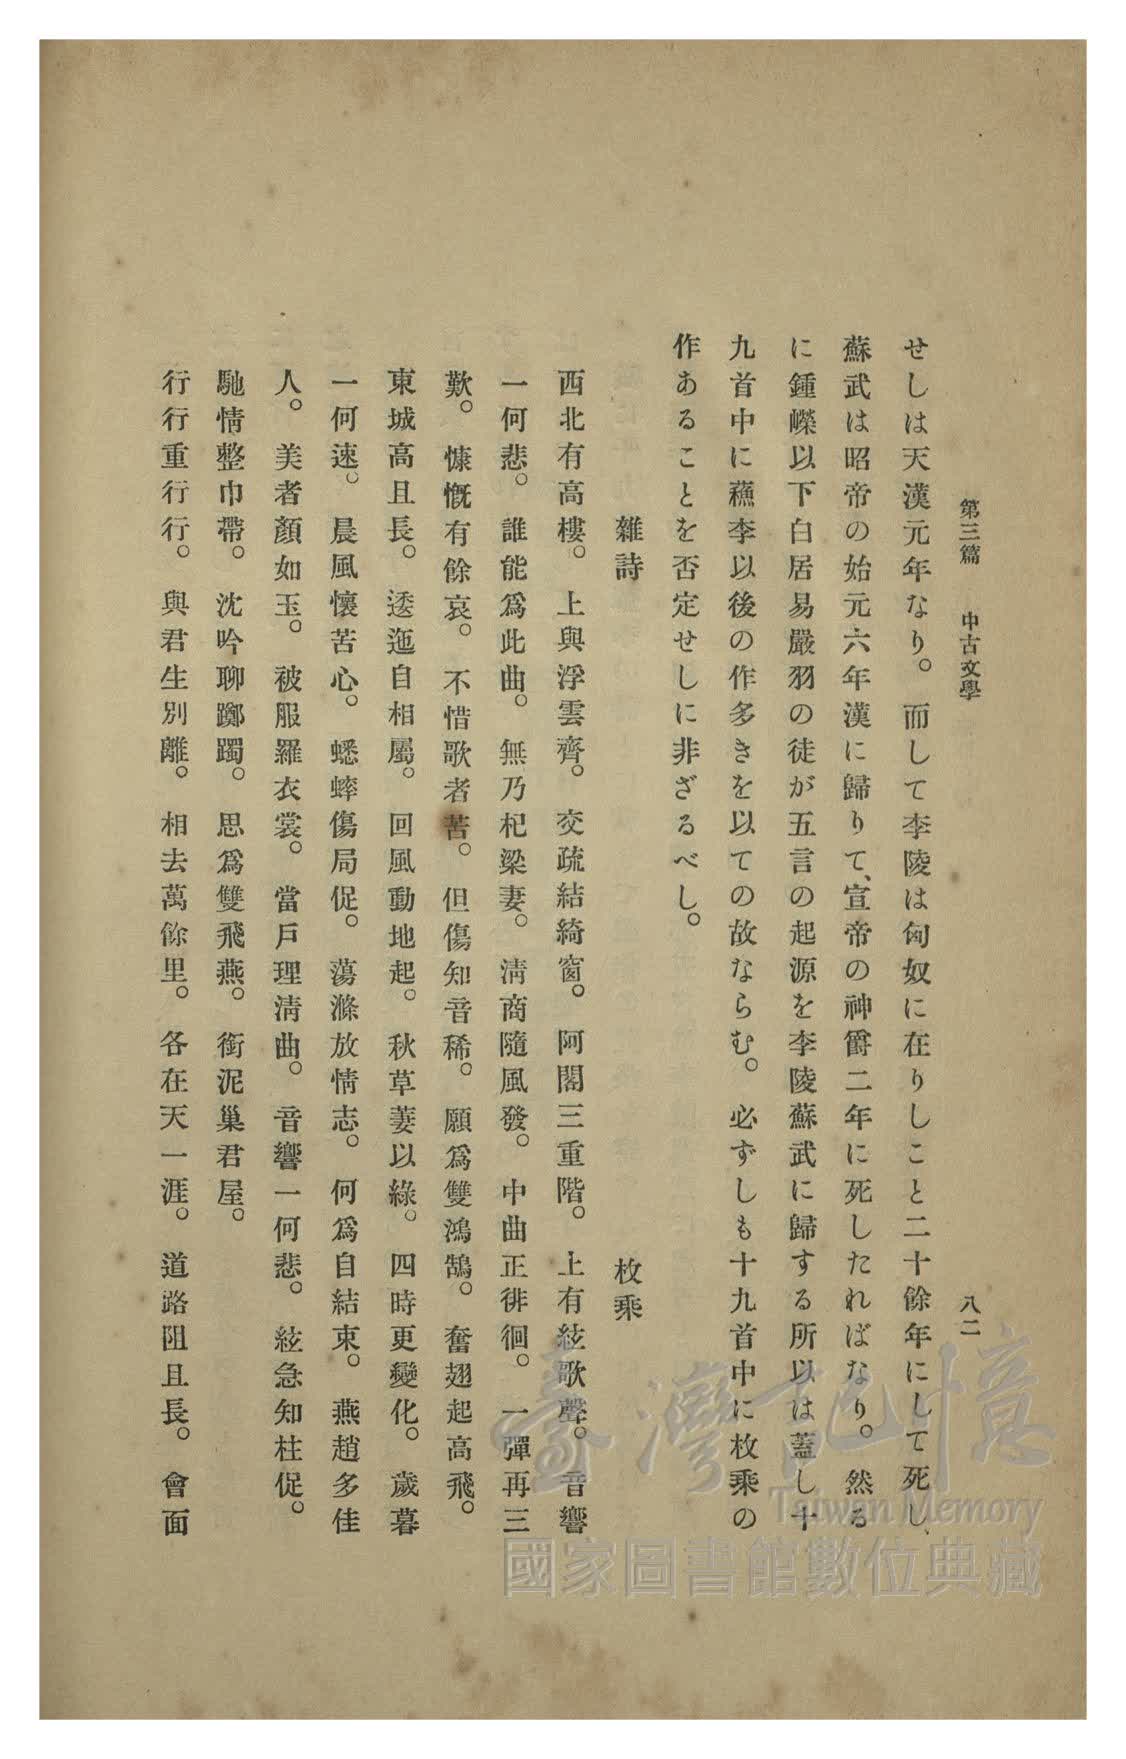 第三篇　中古文學　八二
せしは天漢元年なり。而して李陵は匈奴に在りしこと二十餘年にして死し、
蘇武は昭帝の始元六年漢に歸りて、宣帝の神爵二年に死したればなり。然る
に鍾嶸以下白居易嚴羽の徒が五言の起源を李陵蘇武に歸する所以は蓋し十
九首中に蘓李以後の作多きを以ての故ならむ。必ずしも十九首中に枚乘の
作あることを否定せしに非ざるべし。
雜詩　枚乘
西北有高樓。上與浮雲齊。交疏結綺窗。阿閣三重階。上有絃歌聲。音響
一何悲。誰能爲此曲。無乃杞梁妻。淸商隨風發。中曲正徘徊。一彈再三
歎。慷慨有餘哀。不惜歌者苦。但傷知音稀。願爲雙鴻鵠。奮翅起高飛。
東城高且長。逶迤自相屬。回風動地起。秋草萋以綠。四時更變化。歲暮
一何速。晨風懷苦心。蟋蟀傷局促。蕩滌放情志。何爲自結束。燕趙多佳
人。美者顏如玉。被服羅衣裳。當戶理淸曲。音響一何悲。絃急知柱促。
馳情整巾帶。沈吟聊躑躅。思爲雙飛燕。銜泥巢君屋。
行行重行行。與君生別離。相去萬餘里。各在天一涯。道路阻且長。會面
臺灣記憶
Taiwan Memory
國家圖書館數位典藏